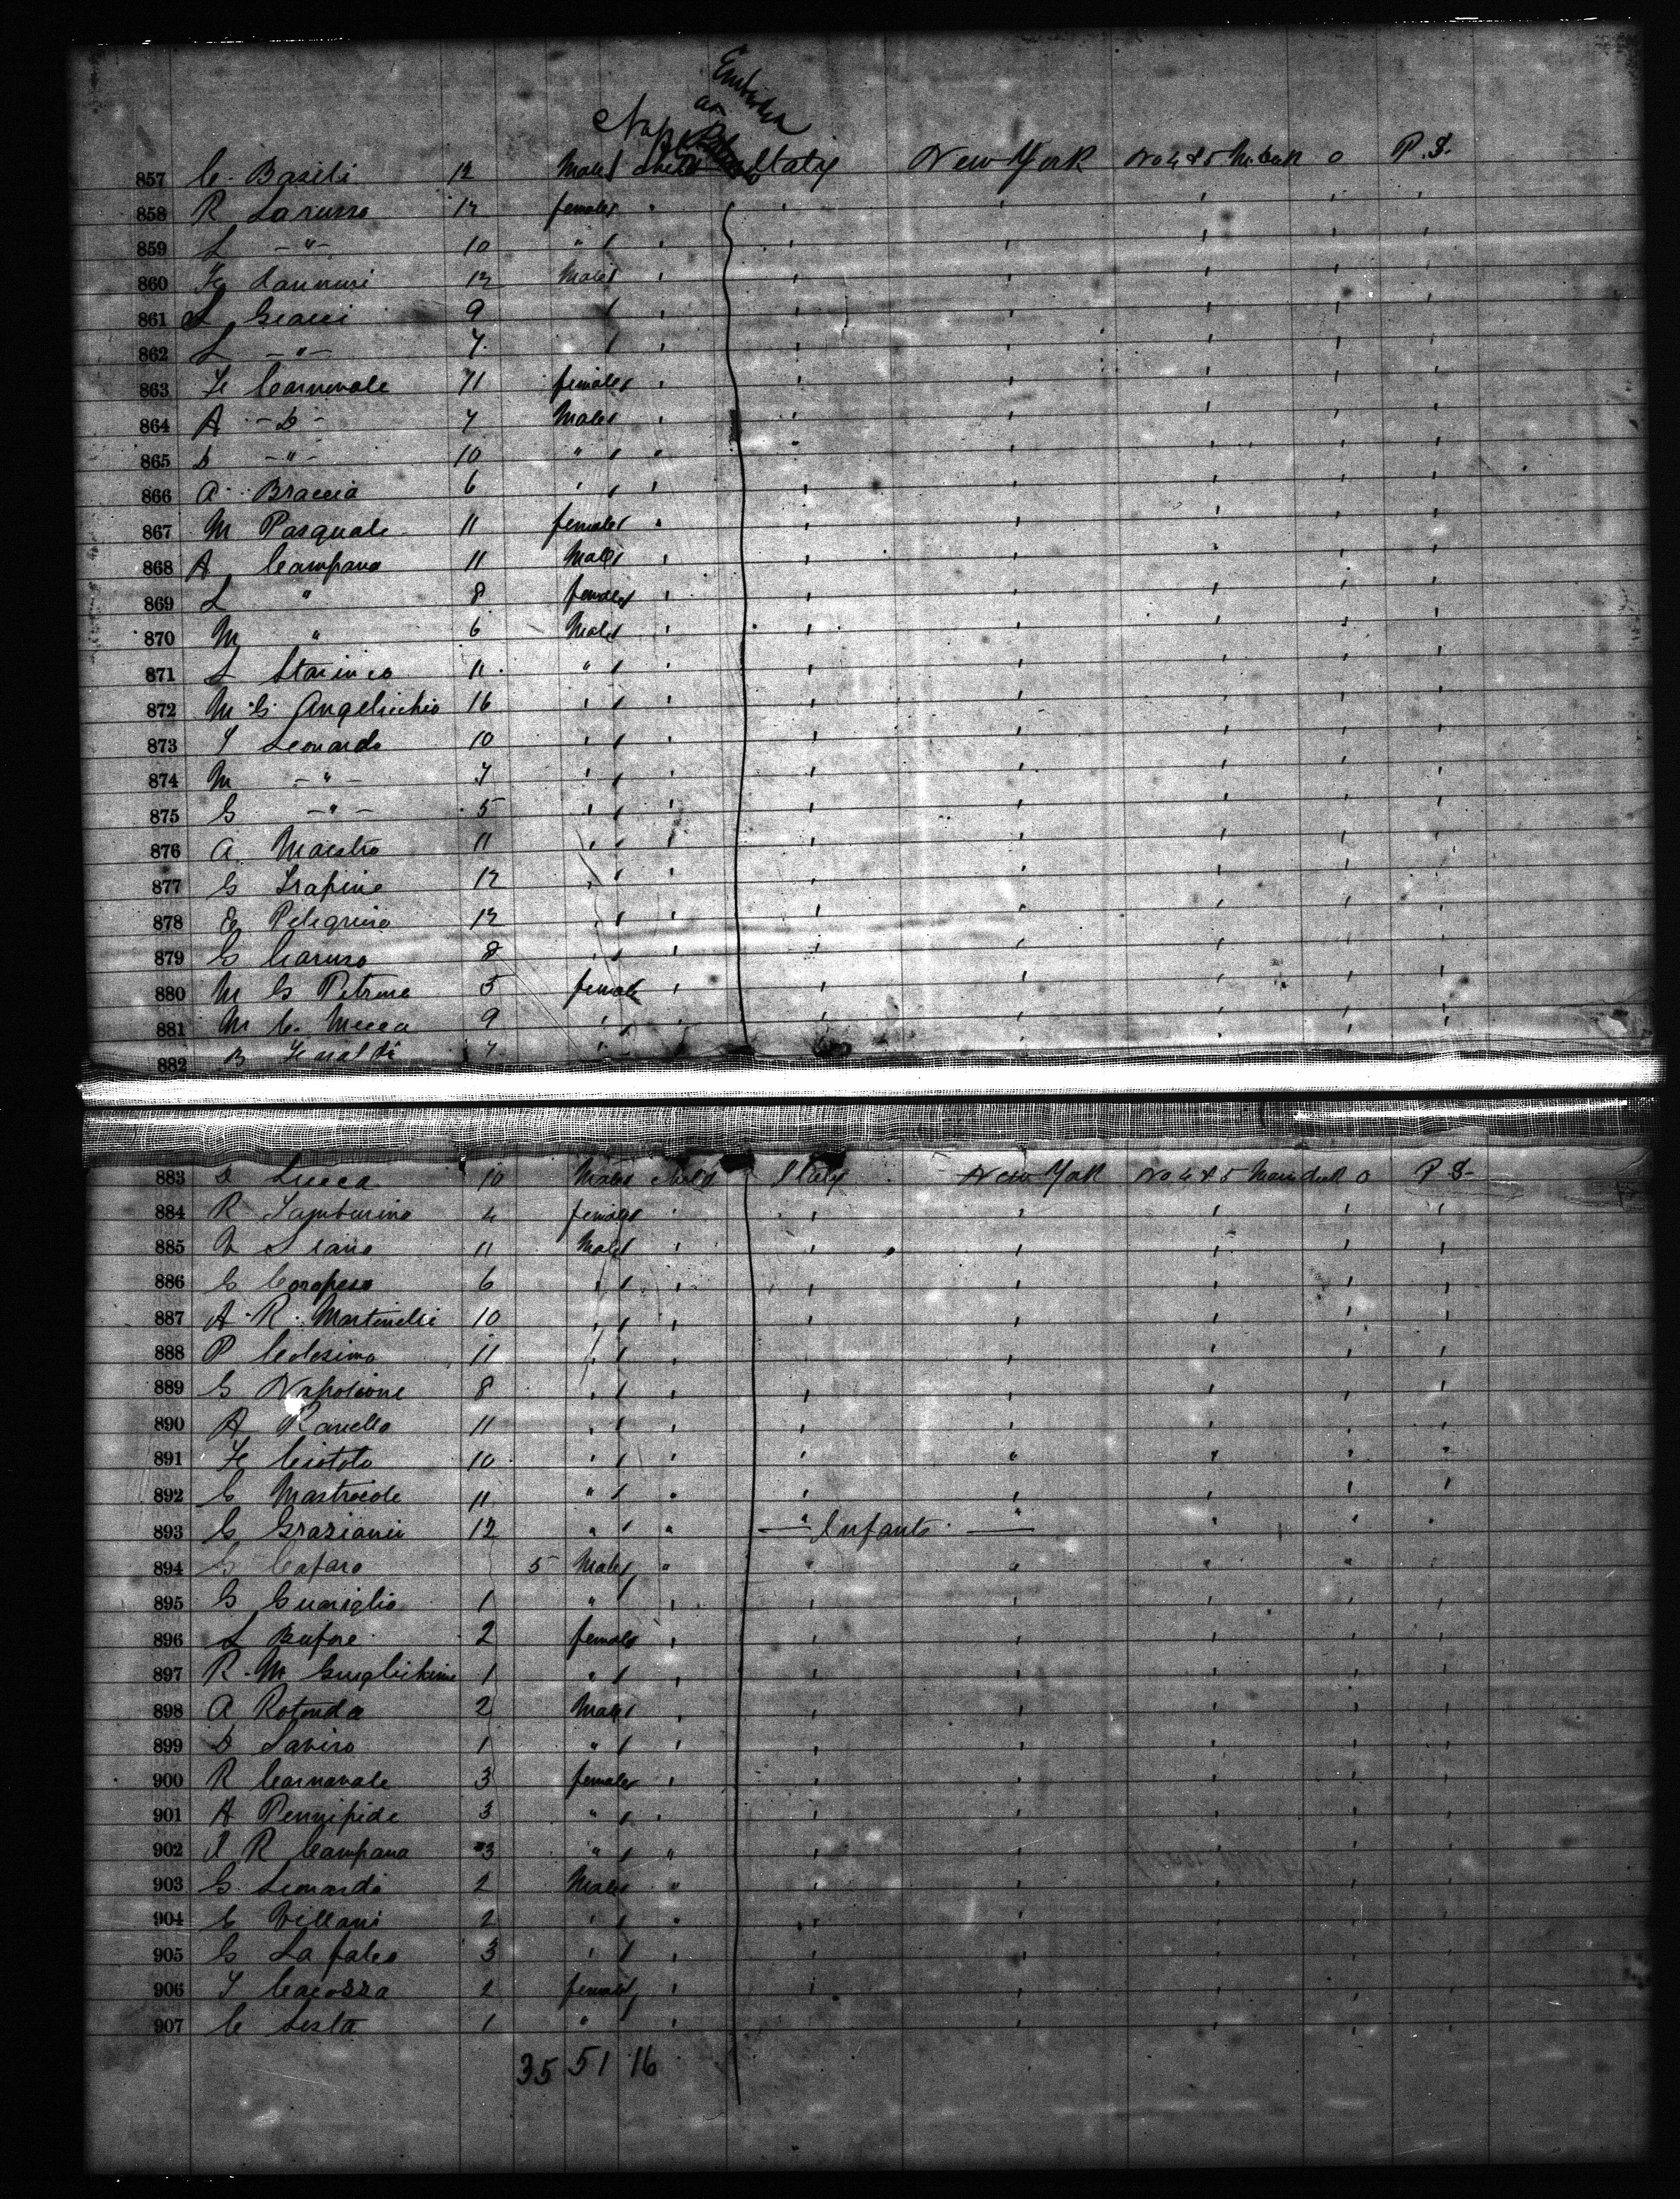 Embarked
at
Naples
857 C. Basili 12 Males Child Italy New York No 4 & 5 M. deck 0 P.S.
858 R Larusso 12 females " ' ' ' ' '
859 L -"- 10 " ' ' ' ' ' '
860 Fe Iannini 12 Males ' ' ' ' ' '
861 L Giacci 9 ' ' ' ' ' '
862 L -"- 7 ' ' ' ' ' '
863 Fe Carnevale 11 females ' ' ' ' ' '
864 A -D- 7 Males ' ' ' ' ' '
865 D -"- 10 " " ' ' ' ' '
866 A. Braccia 6 ' ' ' ' ' ' '
867 M Pasquale 11 females " ' ' ' ' '
868 A Campana 11 Males ' ' ' ' ' '
869 L " 8 females ' ' ' ' ' '
870 M " 6 Males ' ' ' ' ' '
871 L 11 " ' ' ' ' ' '
872 M. G. Angelicchio 16 ' ' ' ' ' ' '
873 Leonardo 10 ' ' ' ' ' ' '
874 M -"- 7 ' ' ' ' ' ' '
875 G -"- 5 ' ' ' ' ' ' '
876 A. Maestro 11 ' ' ' ' ' ' '
877 G 12 ' ' ' ' ' ' '
878 Pelegrino 12 ' ' ' ' ' ' '
879 G Caruso 8 ' ' ' ' ' ' '
880 M G Petrone 5 female ' ' ' ' ' '
881 M C. Mecca 9 ' ' ' ' ' ' '
882 B 7 "
883 D Lucca 10 Males Child Italy New York No 4 & 5 Main deck 0 P S-
884 R Tamburino 4 females ' ' ' ' ' '
885 11 Males ' ' ' ' ' '
886 G Coropeso 6 ' ' ' ' ' ' '
887 A. R. Martinelli 10 ' ' ' ' ' ' '
888 P Colesimo 11 ' ' ' ' ' ' '
889 G Napoleone 8 ' ' ' ' ' ' '
890 A Raniello 11 ' ' ' ' ' ' '
891 Fe Ciotola 10 ' ' ' " " " "
892 G Mastrocole 11 " " ' ' ' ' '
893 G Grazianii 12 " " " — Infants — " " "
894 G Cafaro 5 Males " " " " " '
895 G Guariglio 1 " ' ' ' ' ' '
896 L Bufore 2 female ' ' ' ' ' '
897 R. M 1 " ' ' ' ' ' '
898 A Rotonda 2 Males ' ' ' ' ' '
899 D Saviro 1 " ' ' ' ' ' '
900 R Carnavale 3 females ' ' ' ' ' '
901 A Pennipede 3 " ' ' ' ' ' '
902 R Campana 3 " " ' ' ' ' '
903 G. Leonardo 2 Males " ' ' ' ' '
904 Villani 2 ' " ' ' ' ' '
905 G La falce 3 ' ' ' ' ' ' '
906 Cacossa 2 females ' ' ' ' ' '
907 C Sesta 1 " ' ' ' ' ' '
35 51 16